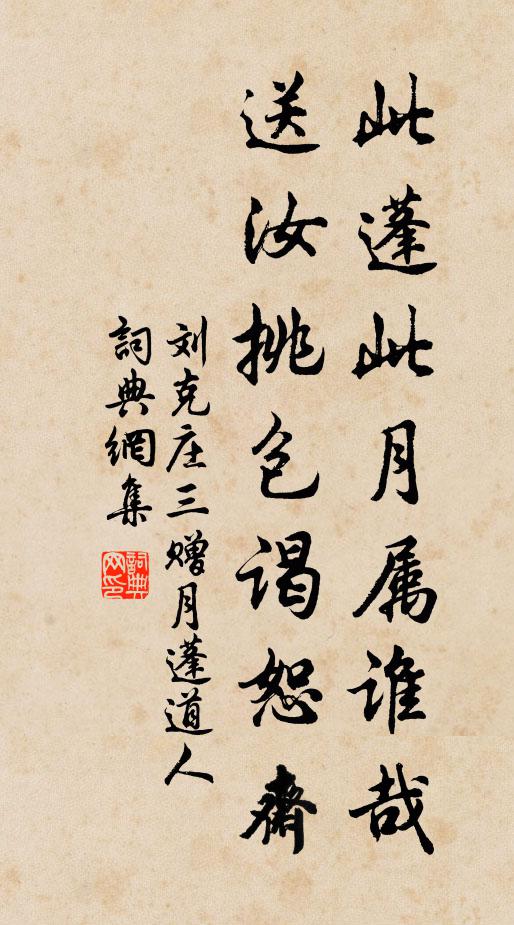 此蓬此月属谁哉
送汝挑包谒恕斋
刘克庄三赠月蓬道人
詞典網集
詞典网印